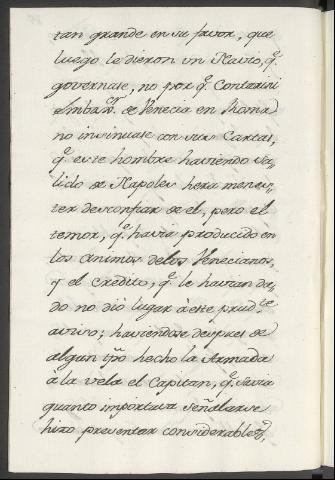 tan grande en su favor, que
luego le dieron un Navio, q.e
governase, no por q.e Contarini
Embax.or de Venecia en Roma
no insinuase con sus Cartas,
q.e este hombre haviendo sa-
lido de Napoles hera menes-
ter desconfiar de el, pero el
temor, q.e havia producido en
los animos de los Venecianos,
y el credito, q.e le havian da-
do no dió lugar à este prud.te
aviso; haviendose despues de
algun tpo hecho la Armada
à la vela el Capitan, q.e savia
quanto importava señalarse
hizo presentar considerables,